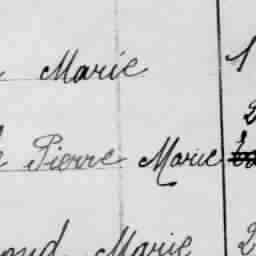 Marie 1
2
Pierre Marie
Marie 2